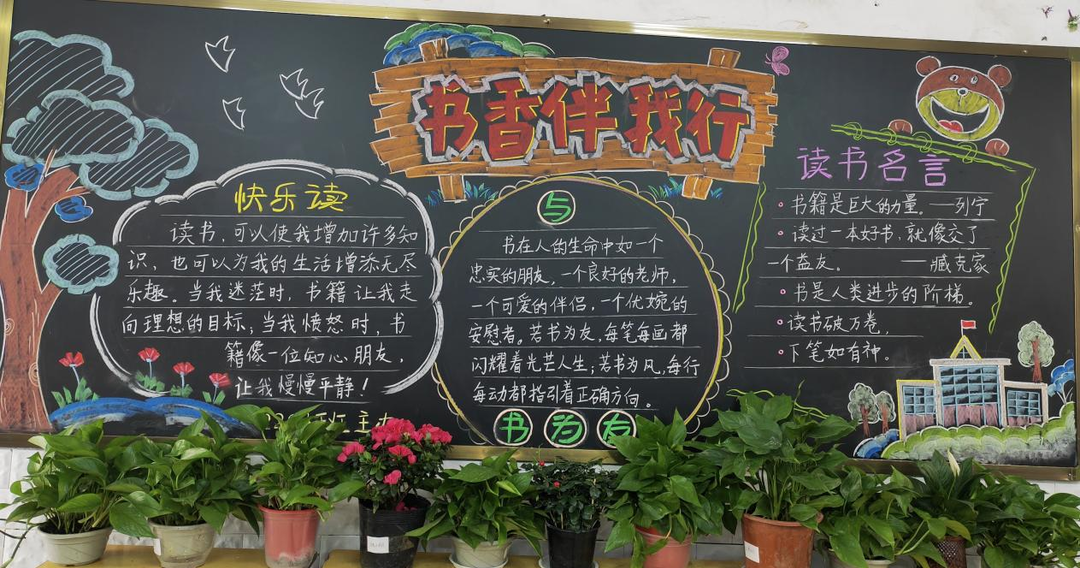 书香伴我行
快乐读
读书，可以使我增加许多知
识，也可以为我的生活增添无尽
乐趣。当我迷茫时，书籍让我走
向理想的目标；当我愤怒时，书
籍像一位知心朋友，
让我慢慢平静！
主办
与
书在人的生命中如一个
忠实的朋友，一个良好的老师，
一个可爱的伴侣，一个优婉的
安慰者。若书为友，每笔每画都
闪耀着光芒人生；若书为风，每行
每动都指引着正确方向。
书为友
读书名言
·书籍是巨大的力量。——列宁
·读过一本好书，就像交了
一个益友。——臧克家
·书是人类进步的阶梯。
·读书破万卷，
·下笔如有神。